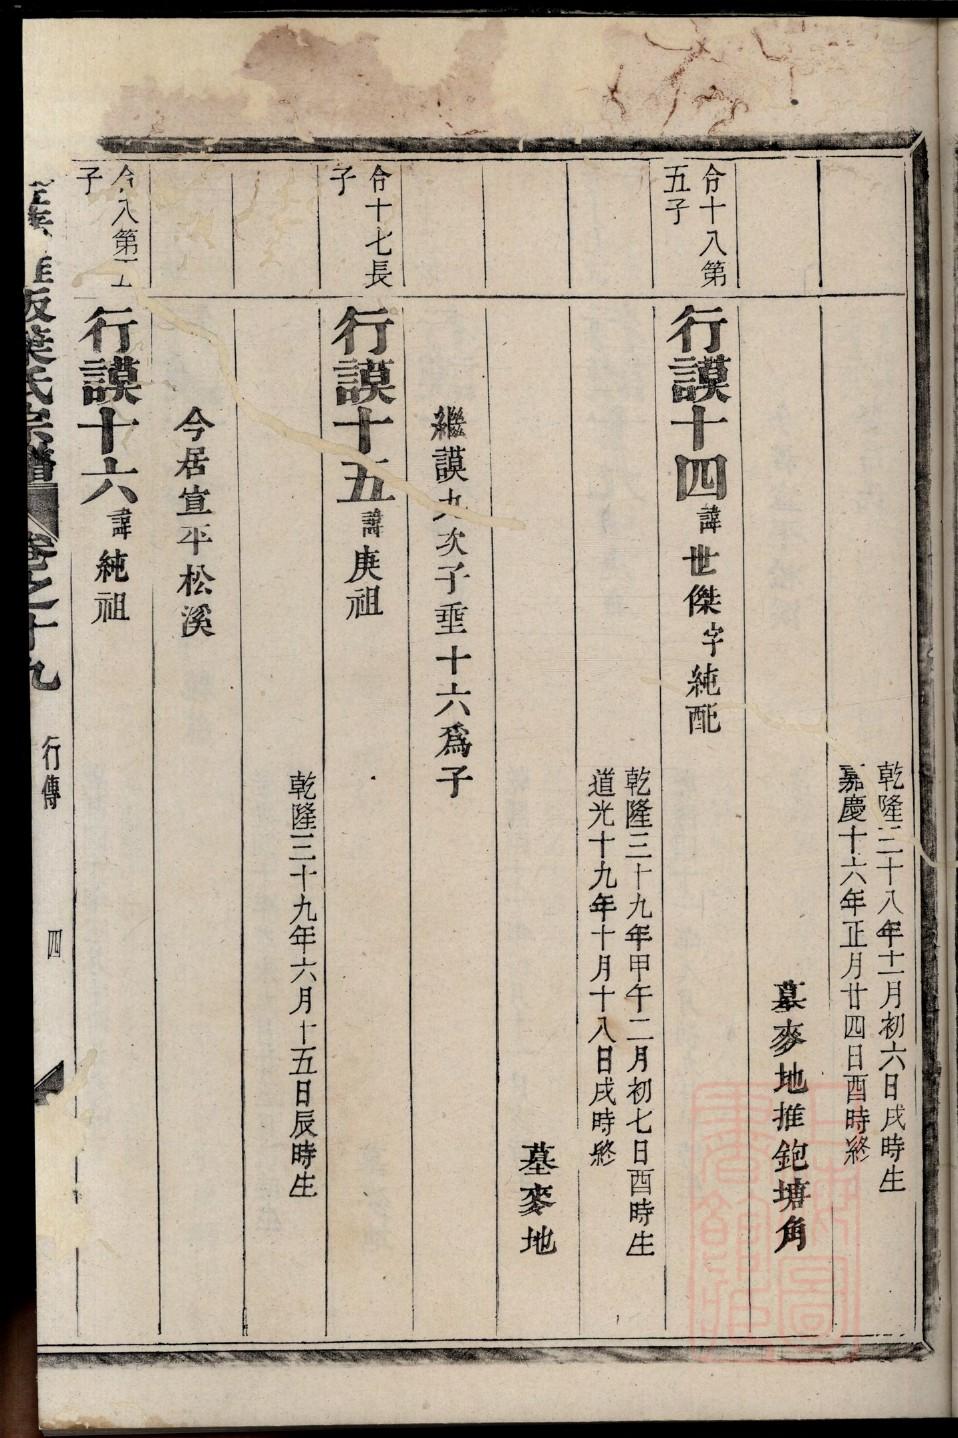 乾隆三十八年十一月初六日戌時生
嘉慶十六年正月廿四日酉時終
墓麥地推鉋塘角
合十八第
五子
行謨十四諱世傑字純配
乾隆三十九年甲午二月初七日酉時生
道光十九年十月十八日戌時終
墓麥地
繼謨九次子垂十六爲子
合十七長
子
行謨十五諱庚祖
乾隆三十九年六月十五日辰時生
今居宣平松溪
八第五
子
行謨十六諱純祖
坂葉氏宗譜 卷之十九 行傳 四